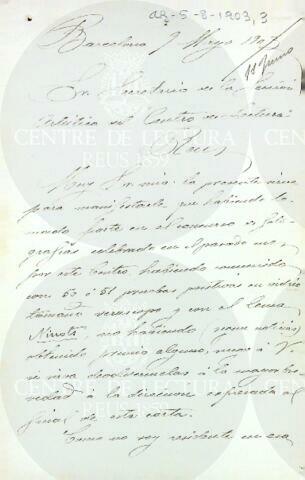 ar-5-8-1903,3
Barcelona 9 Mayo 1903
18 Junio
Sr. Secretario de la Sección
Artística del Centro de Lectura
Reus
CENTRE DE LECTURA
REUS 1859
Muy Sr. mio: la presente sirve
para manifestarle, que habiendo to-
mado parte en el concurso de foto-
grafías celebrado en el pasado mes,
por este Centro, habiendo concurrido,
con 50 ó 51 pruebas positivas en vidrio
tamaño verascopo y con el lema
no habiendo, segun noticias,
obtenido premio alguno, ruego á V.
se sirva devolvermelas á la mayor bre-
vedad á la direccion expresada al
final de esta carta.
Como no soy residente en esa